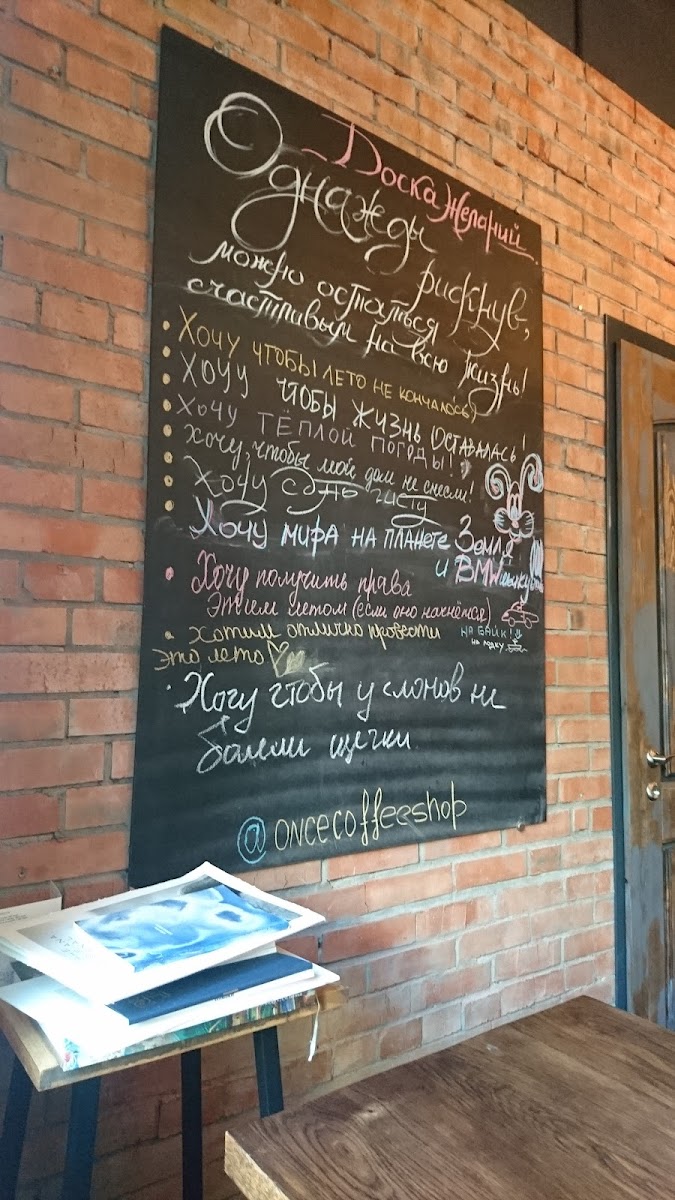 Доска желаний
Однажды
рискнув,
можно остаться
счастливым на всю жизнь!
Хочу чтобы лето не кончалось)
Хочу чтобы жизнь оставалась!
Хочу тёплой погоды!
Хочу, чтобы мой дом не снесли!
Хочу
Хочу мира на планете Земля
и BMW
Хочу получить права
Этим летом (если оно начнётся)
Хотим отлично провести
это лето
НА БАЙК!
на лодку
Хочу чтобы у слонов не
болели щёчки
@oncecoffeeshop